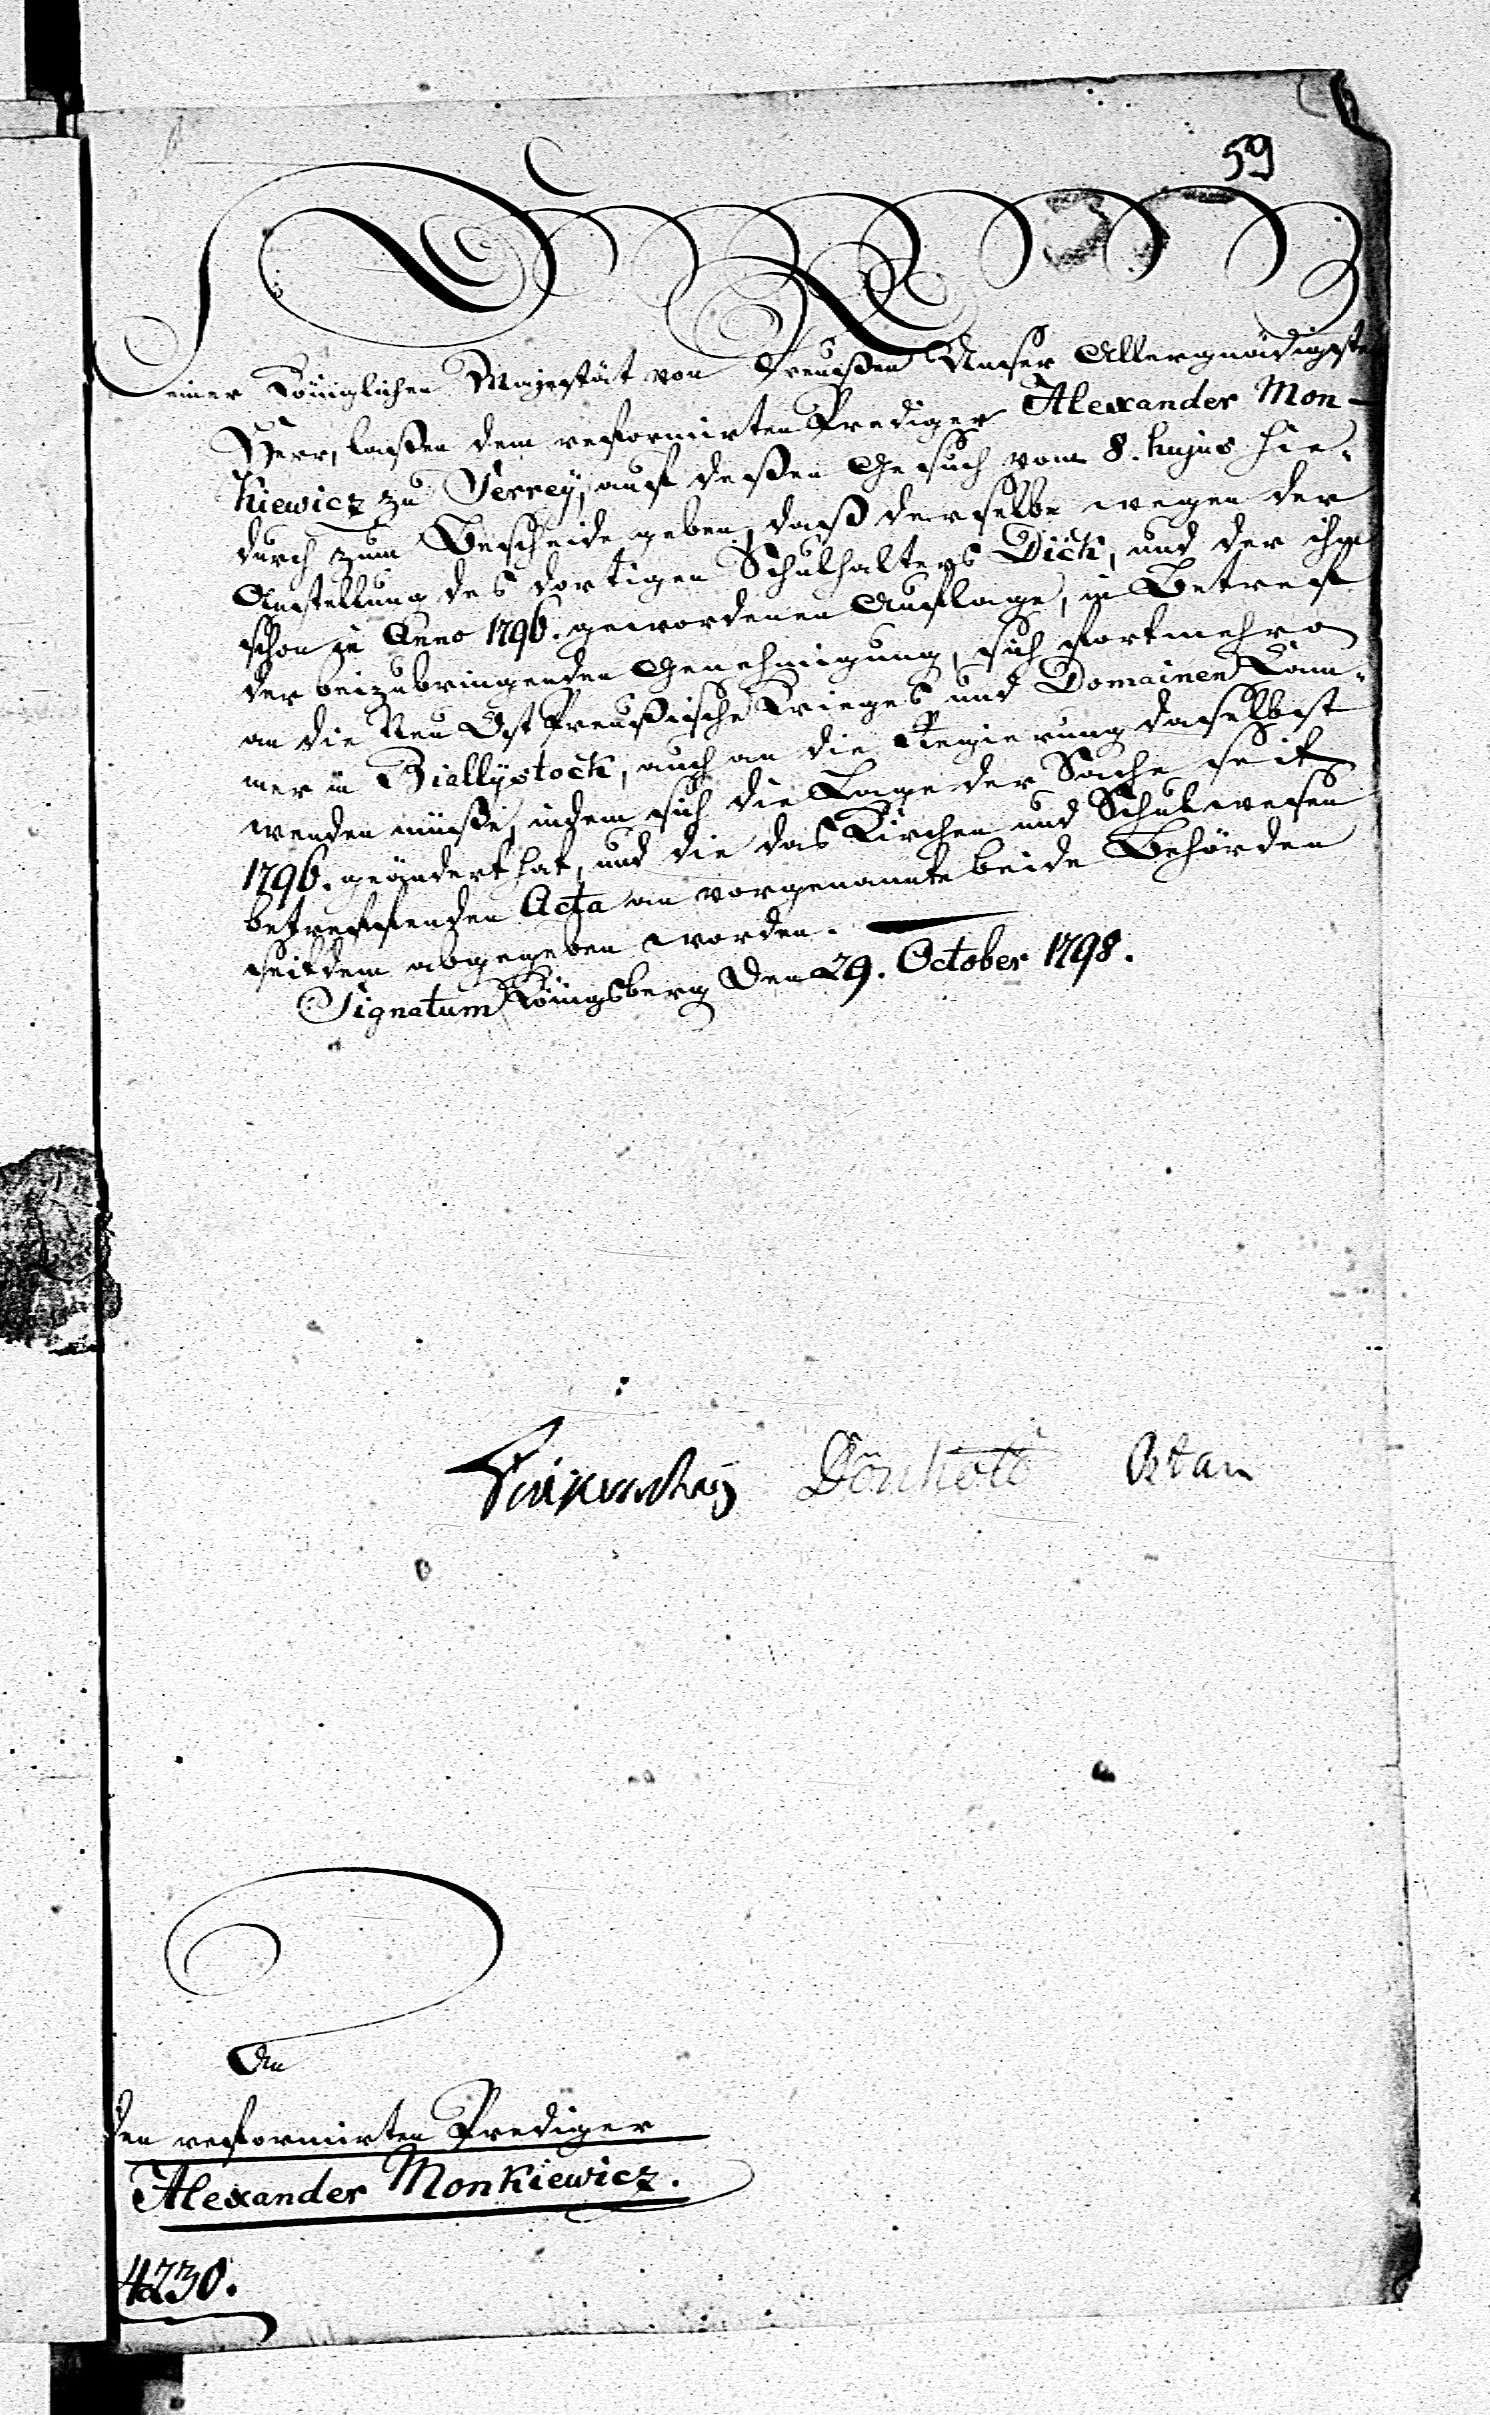 59
Seiner Königlichen Majestät von Preußen Unser Allergnädigster
Herr, laßen dem reformirten Prediger Alexander Mon-
kiewicz zu Serrey, auf deßen Gesuch vom 8. hujus hie-
durch zum Bescheide geben, daß derselbe wegen der
Anstellung des dortigen Schulhalters Dick, und der ihm
schon in Anno 1796. gewordenen Auflage, in Betreff
der beizubringenden Genehmigung, sich fortmehro
an die Neu Ost Preußische Krieges und Domainen Kam-
mer in Biallystock, auch an die Regierung daselbst
wenden müße, indem sich die Lage der Sache seit
1796. geändert hat, und die das Kirchen und Schulwesen
betreffenden Acta an vorgenannte beide Behörden
seitdem abgegeben worden.
Signatum Königsberg den 29. October 1798.
Dönhoff
An
den reformirten Prediger
Alexander Monkiewicz.
4230.